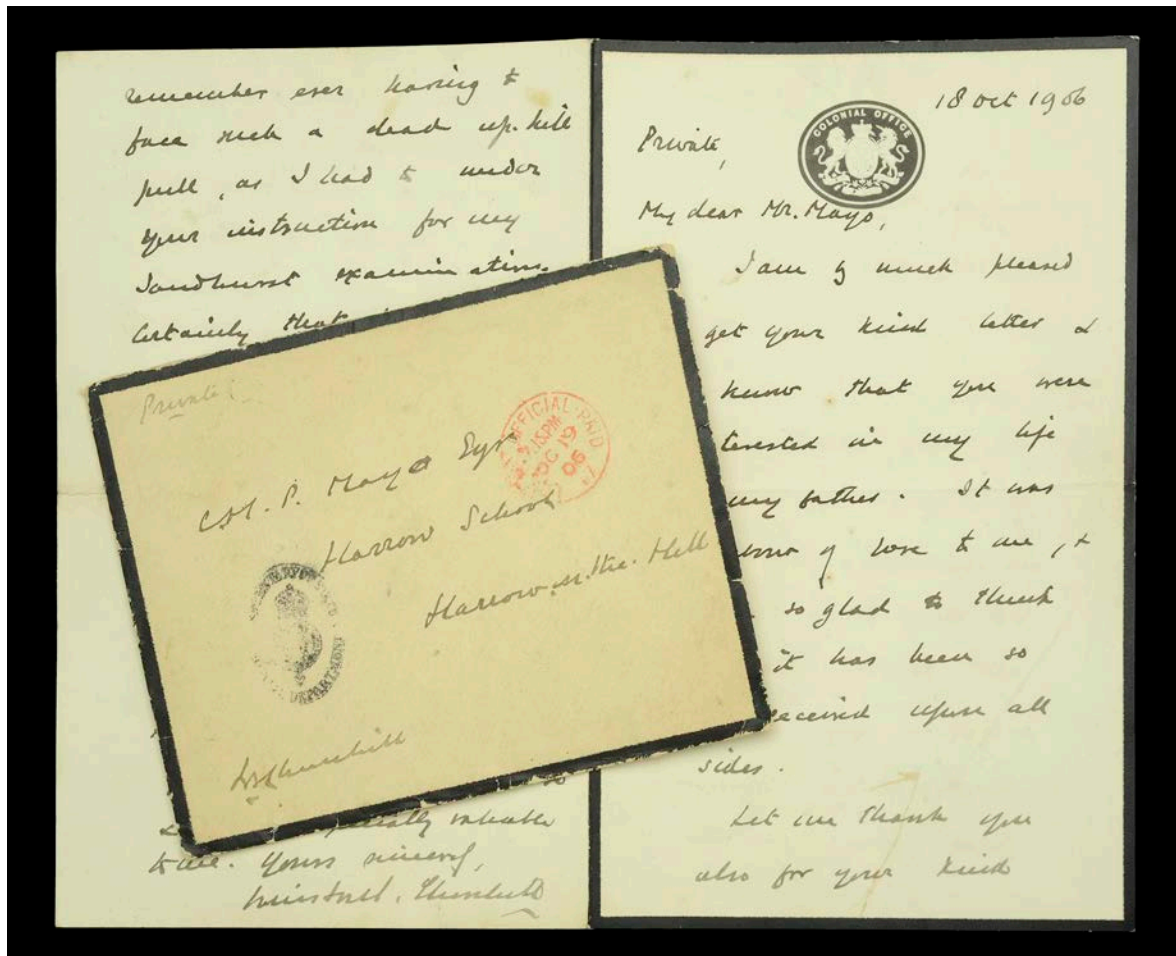 remember ever having to
face such a dead up-hill
pull, as I had to under
your instruction for my
Sandhurst examination.
Certainly that
specially valuable
to me. Yours sincerely,
Winston S. Churchill
Private
C.H.P. Mayo Esqr
Harrow School
Harrow.on.the.Hill
OFFICIAL PAID
.15PM
OC 19
06
DEPARTMENT
WSChurchill
18 Oct 1906
COLONIAL OFFICE
Private,
My dear Mr. Mayo,
I am so much pleased
get your kind letter &
know that you were
terested in my life
my father. It was
of love to me, &
so glad to think
it has been so
eceived upon all
sides.
Let me thank you
also for your kind